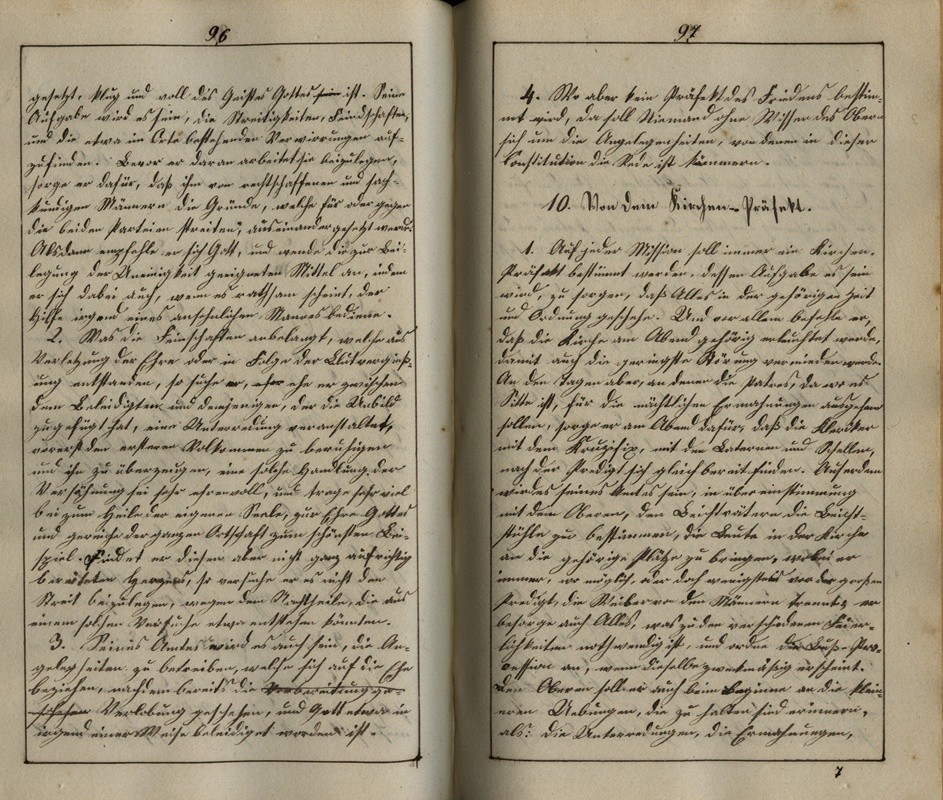 96
gesetzt, klug und voll des Geistes Gottes sein ist. Seine
Aufgabe wird es sein, die Streitigkeiten, Feindschaften,
und die etwa im Orte bestehenden Verwirrungen auf-
zufinden. Bevor er daran arbeitet sie beizulegen,
sorge er dafür, daß ihm von rechtschaffenen und sach-
kundigen Männern die Gründe, welche für oder gegen
die beiden Parteien streiten, auseinander gesetzt werde.
Alsdann empfehle er sich Gott, und wende die zur Bei-
legung der Uneinigkeit geeigneten Mittel an, indem
er sich dabei auch, wenn es rathsam scheint, der
Hilfe irgend eines ansehnlichen Mannes bediene.
2. Was die Feindschaften anbelangt, welche aus
Verletzung der Ehre oder in Folge der Blutvergieß-
ung entstanden, so suche er, ehe er zwischen
dem Beleidigten und demjenigen, der die Unbild
zugefügt hat, eine Unterredung veranstaltet,
vorerst den ersteren Vollkommen zu beruhigen
und ihn zu überzeugen, eine solche Handlung der
Versöhnung sei sehr ehrenvoll, und trage sehr viel
bei zum Heile der eigenen Seele, zur Ehre Gottes
und gereiche der ganzen Ortschaft zum schönsten Bei-
spiel. Findet er diesen aber nicht ganz aufrichtig
bereiteten Herzens, so versuche er es nicht den
Streit beizulegen, wegen dem Nachtheile, die aus
einem solchen Versuche etwa entstehen könnten.
3. Seines Amtes wird es auch sein, die An-
gelegenheiten zu betreiben, welche sich auf die Ehe
beziehen, nachdem bereits die Vorbereitung ge-
schehen Verlobung geschehen, und Gott etwa in
irgend einer Weise beleidiget worden ist.
97
4. Wo aber kein Präfekt des Friedens bestim-
mt wird, da soll Niemand ohne Wissen des Obern
sich um die Angelegenheiten, von denen in dieser
Constitution die Rede ist kümmern.
10. Von dem Kirchen-Präfekt.
1. Auf jeder Mission soll immer ein Kirchen-
Präfekt bestimmt werden, dessen Aufgabe es sein
wird, zu sorgen, daß Alles in der gehörigen Zeit
und Ordnung geschehe. Und vor allem befehle er,
daß die Kirche am Abend gehörig erleuchtet werde,
damit auch die geringste Störung vermieden werde.
An den Tagen aber, an denen die Patres, da wo es
Sitte ist, für die nächtlichen Ermahnungen ausgehen
sollen, sorge er am Abend dafür, daß die Kleriker
mit dem Kruzifix, mit den Laternen und Schellen,
nach der Predigt sich gleich bereit finden. Außerdem
wird es seines Amtes sein, in übereinstimmung
mit dem Oberen, den Beichtvätern die Beicht-
stühle zu bestimmen, die Leute in der Kirche
an die gehörige Plätze zu bringen, wobei er
immer, wo möglich, oder doch wenigstens vor der großen
Predigt, die Weiber von den Männern trennt; er
besorge auch Alles, was zu den verschiedenen Feier-
lichkeiten nothwendig ist, und ordne die Buß-Pro-
cession an, wenn dieselbe zweckmäßig erscheint.
Den Oberen soll er auch beim Beginne an die klein-
eren Uebungen, die zu halten sind erinnern,
als: die Unterredungen, die Ermahnungen,
7